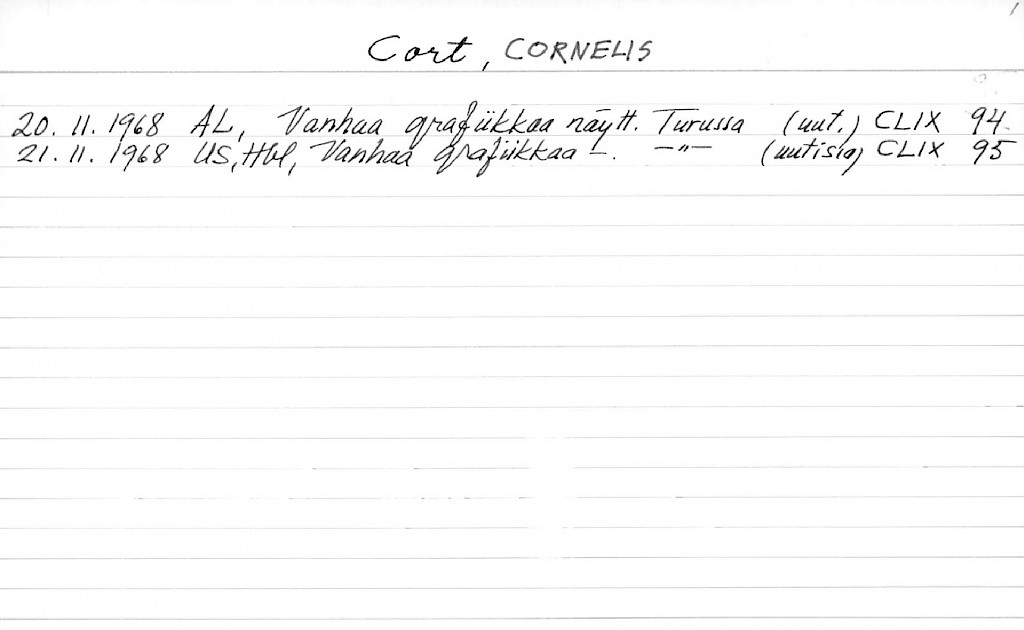 1
Cort, CORNELIS
20. 11. 1968 AL, Vanhaa grafiikkaa näytt. Turussa (uut.) CLIX 94
21. 11. 1968 US, Hbl, Vanhaa grafiikkaa -. -"- (uutisia) CLIX 95